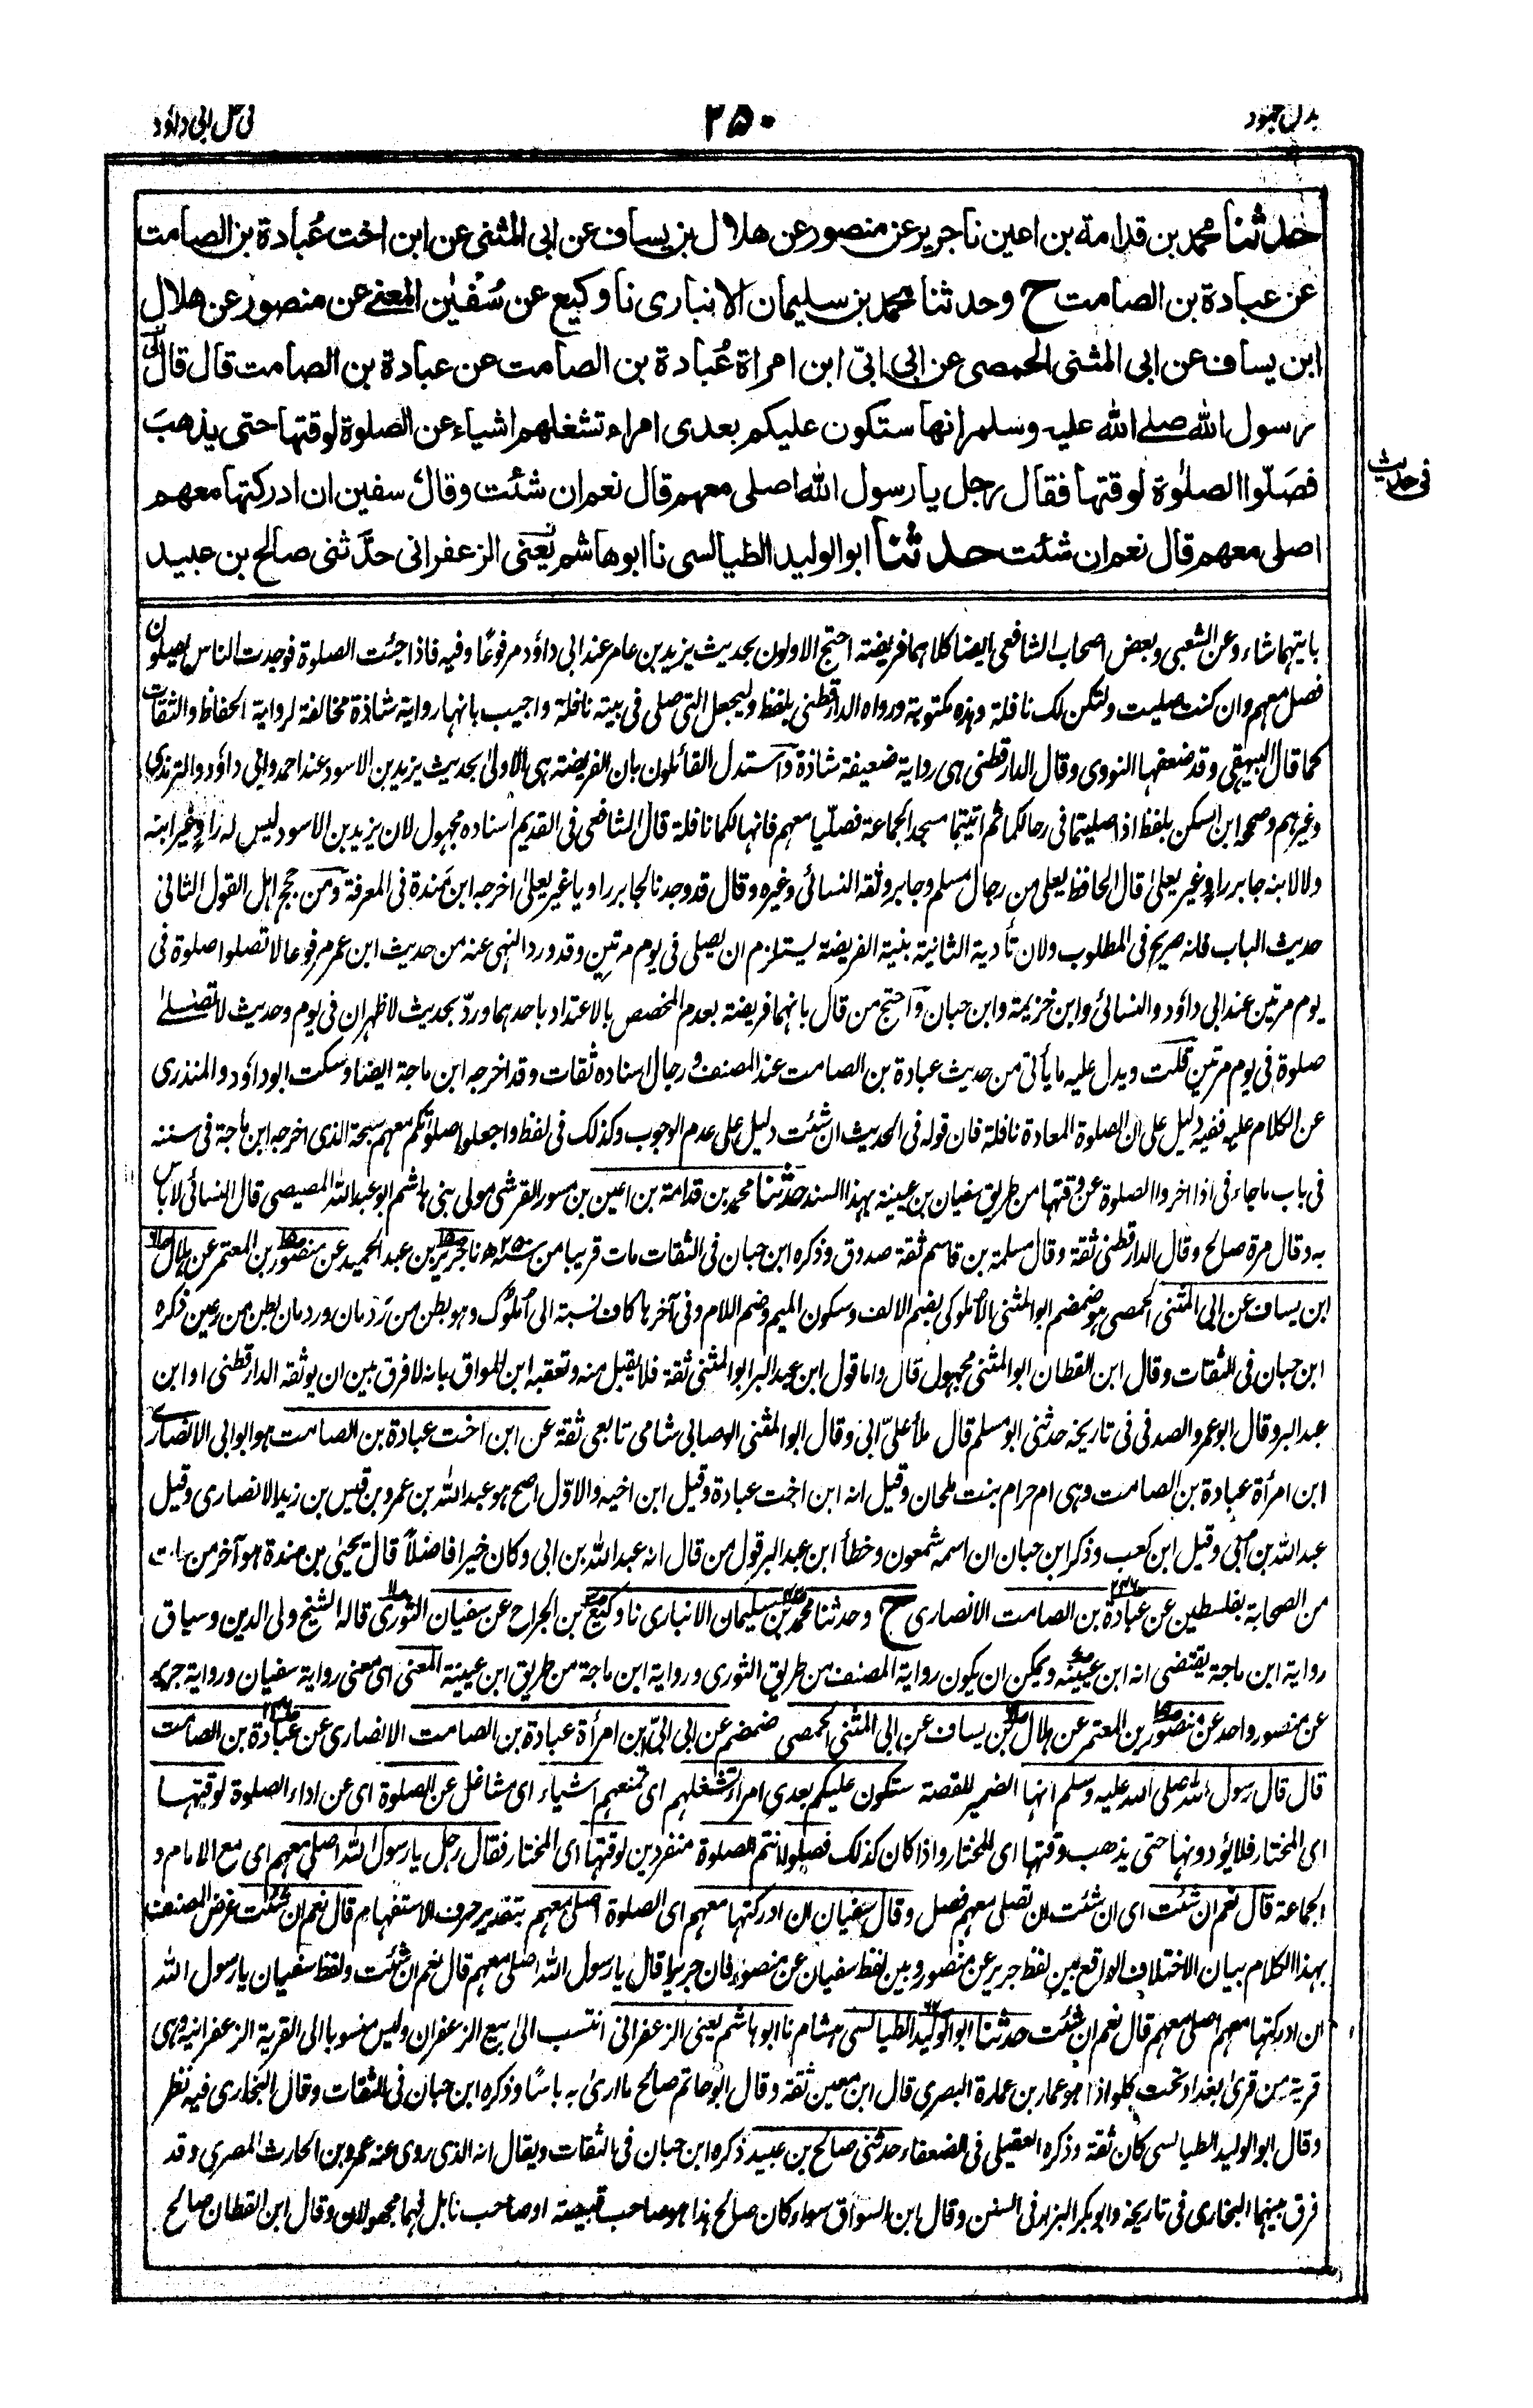 بذل المجهود
٢٥٠
في حل ابي داؤد
حدثنا محمد بن قدامة بن اعين نا جرير عن منصور عن هلال بن يساف عن ابى المثنى عن ابن اخت عُبادة بن الصامت
عن عبادة بن الصامت ح وحدثنا محمد بن سليمان الانبارى نا وكيع عن سُفيٰن المعنے عن منصور عن هلال
ابن يساف عن ابى المثنى الحمصى عن ابى ابىّ ابن امراة عُبادة بن الصامت عن عبادة بن الصامت قال قال لى
رسول الله صلے الله عليه وسلم انها ستكون عليكم بعدى امراء تشغلهم اشياء عن الصلوة لوقتها حتى يذهبَ
فصَلّوا الصلوٰة لوقتها فقال رجل يا رسول الله اصلى معهم قال نعم ان شئت وقال سفين ان ادركتها معهم
فى حديث
اصلى معهم قال نعم ان شئت حدثنا ابو الوليد الطيالسى نا ابو هاشم يعنى الزعفرانى حدَّثنى صالح بن عبيد
بايتهما شاء وعن الشعبى وبعض اصحاب الشافعى ايضا كلاهما فريضة احتج الاولون بحديث يزيد بن عامر عند ابى داؤد مرفوعًا وفيه فاذا جئت الصلوة فوجدت الناس يصلون
فصل معهم وان كنت صليت ولتكن لك نافلة وهذه مكتوبة ورواه الدارقطنى بلفظ وليجعل التى صلى فى بيته نافلة واجيب بانها رواية شاذة مخالفة لرواية الحفاظ والثقات
كما قال البيهقى وقد ضعفها النووى وقال الدارقطنى هى رواية ضعيفة شاذة واستدل القائلون بان الفريضة هى الاولىٰ بحديث يزيد بن الاسود عند احمد وابى داؤد والترمذى
وغيرهم وصححه ابن السكن بلفظ اذا صليتما فى رحالكما ثم اتيتما مسجد الجماعة فصلّيا معهم فانها لكما نافلة قال الشافعى فى القديم اسناده مجهول لان يزيد بن الاسود ليس له راوٍ غير ابنه
ولا لابنه جابر راوٍ غير يعلىٰ قال الحافظ يعلى من رجال مسلم وجابر وثقه النسائى وغيره وقال قد وجدنا لجابر راويا غير يعلىٰ اخرجه ابن مَندة فى المعرفة ومن حجج اهل القول الثانى
حديث الباب فانه صريح فى المطلوب ولان تأدية الثانية بنية الفريضة يستلزم ان يصلى فى يوم مرتين وقد ورد النهى عنه من حديث ابن عمر مرفوعا لا تصلوا صلوة فى
يوم مرتين عند ابى داؤد والنسائى وابن خزيمة وابن حبان واحتج من قال بانهما فريضة بعدم المخصص بالاعتداد باحدهما وردّ بحديث لا ظهران فى يوم وحديث لا تصلےٰ
صلوة فى يوم مرتين قلت ويدل عليه ما يأتى من حديث عبادة بن الصامت عند المصنف ورجال اسناده ثقات وقد اخرجه ابن ماجة ايضا وسكت ابو داؤد والمنذرى
عن الكلام عليه ففيه دليل على ان الصلوة المعادة نافلة فان قوله فى الحديث ان شئت دليل على عدم الوجوب وكذلك فى لفظ واجعلوا صلوتكم معهم سبحة الذى اخرجه ابن ماجة فى سننه
فى باب ما جاء فى اذا اخروا الصلوة عن وقتها من طريق سفيان بن عيينة بهذا السند حدثنا محمد بن قدامة بن اعين بن مسور القرشى مولى بنى هاشم ابو عبد الله المصيصى قال النسائى لا باس
به وقال مرة صالح وقال الدارقطنى ثقة وقال مسلمة بن قاسم ثقة صدوق وذكره ابن حبان فى الثقات مات قريبا من سنة ٢٥٠ھ نا جرير بن عبد الحميد عن منصور بن المعتمر عن هلال
ابن يساف عن ابى المثنى الحمصى هو ضمضم ابو المثنى الأملوكى بضم الالف وسكون الميم وضم اللام وفى آخرها كاف نسبة الى أملوك وهو بطن من رَدمان وردمان بطن من رعين ذكره
ابن حبان فى الثقات وقال ابن القطان ابو المثنى مجهول قال واما قول ابن عبد البر ابو المثنى ثقة فلا يقبل منه وتعقبه ابن المواق بانه لا فرق بين ان يوثقه الدارقطنى او ابن
عبد البر وقال ابو عمرو الصدفى فى تاريخه حدثنى ابو مسلم قال ملأ علىّ ابى وقال ابو المثنى الوصابى شامى تابعى ثقة عن ابن اخت عبادة بن الصامت هو ابو ابى الانصارى
ابن امرأة عبادة بن الصامت وهى ام حرام بنت ملحان وقيل انه ابن اخت عبادة وقيل ابن اخيه والاوّل اصح هو عبد الله بن عمرو بن قيس بن زيد الانصارى وقيل
عبد الله بن ابى وقيل ابن كعب وذكر ابن حبان ان اسمه شمعون وخطأ ابن عبد البر قول من قال انه عبد الله بن ابى وكان خيرا فاضلاً قال يحيىٰ بن مندة هو آخر من مات
من الصحابة بفلسطين عن عبادة بن الصامت الانصارى ح وحدثنا محمد بن سليمان الانبارى نا وكيع بن الجراح عن سفيان الثورى قاله الشيخ ولى الدين وسياق
رواية ابن ماجة يقتضى انه ابن عيينة ويمكن ان يكون رواية المصنف من طريق الثورى ورواية ابن ماجة من طريق ابن عيينة المعنى اى معنى رواية سفيان ورواية جرير
عن منصور واحد عن منصور بن المعتمر عن هلال بن يساف عن ابى المثنى الحمصى ضمضم عن ابى ابىّ ابن امرأة عبادة بن الصامت الانصارى عن عبادة بن الصامت
قال قال رسول الله صلى الله عليه وسلم انها الضمير للقصة ستكون عليكم بعدى امراء تشغلهم اى تمنعهم اشياء اى مشاغل عن الصلوة اى عن اداء الصلوة لوقتها
اى المختار فلا يؤدونها حتى يذهب وقتها اى المختار واذا كان كذلك فصلوا انتم الصلوة منفردين لوقتها اى المختار فقال رجل يا رسول الله اصلى معهم اى مع الامام و
الجماعة قال نعم ان شئت اى ان شئت ان تصلى معهم فصل وقال سفيان ان ادركتها معهم اى الصلوة اصلى معهم بتقدير حرف الاستفهام قال نعم ان شئت غرض المصنف
بهذا الكلام بيان الاختلاف الواقع بين لفظ جرير عن منصور وبين لفظ سفيان عن منصور فان جريرا قال يا رسول الله اصلى معهم قال نعم ان شئت ولفظ سفيان يا رسول الله
ان ادركتها معهم اصلى معهم قال نعم ان شئت حدثنا ابو الوليد الطيالسى هشام نا ابو هاشم يعنى الزعفرانى انتسب الىٰ بيع الزعفران وليس منسوبا الى القرية الزعفرانية وهى
قرية من قرىٰ بغداد تحت كلواذا هو عمار بن عمارة البصرى قال ابن معين ثقة وقال ابو حاتم صالح ما ارىٰ به باسًا وذكره ابن حبان فى الثقات وقال البخارى فيه نظر
وقال ابو الوليد الطيالسى كان ثقة وذكره العقيلى فى الضعفاء حدثنى صالح بن عبيد ذكره ابن حبان فى الثقات ويقال انه الذى روى عنه عمرو بن الحارث المصرى وقد
فرق بينهما البخارى فى تاريخه وابو بكر البزار فى السنن وقال ابن السواق سواء كان صالح هذا هو صاحب قبيصة او صاحب نابل فهما مجهولان وقال ابن القطان صالح